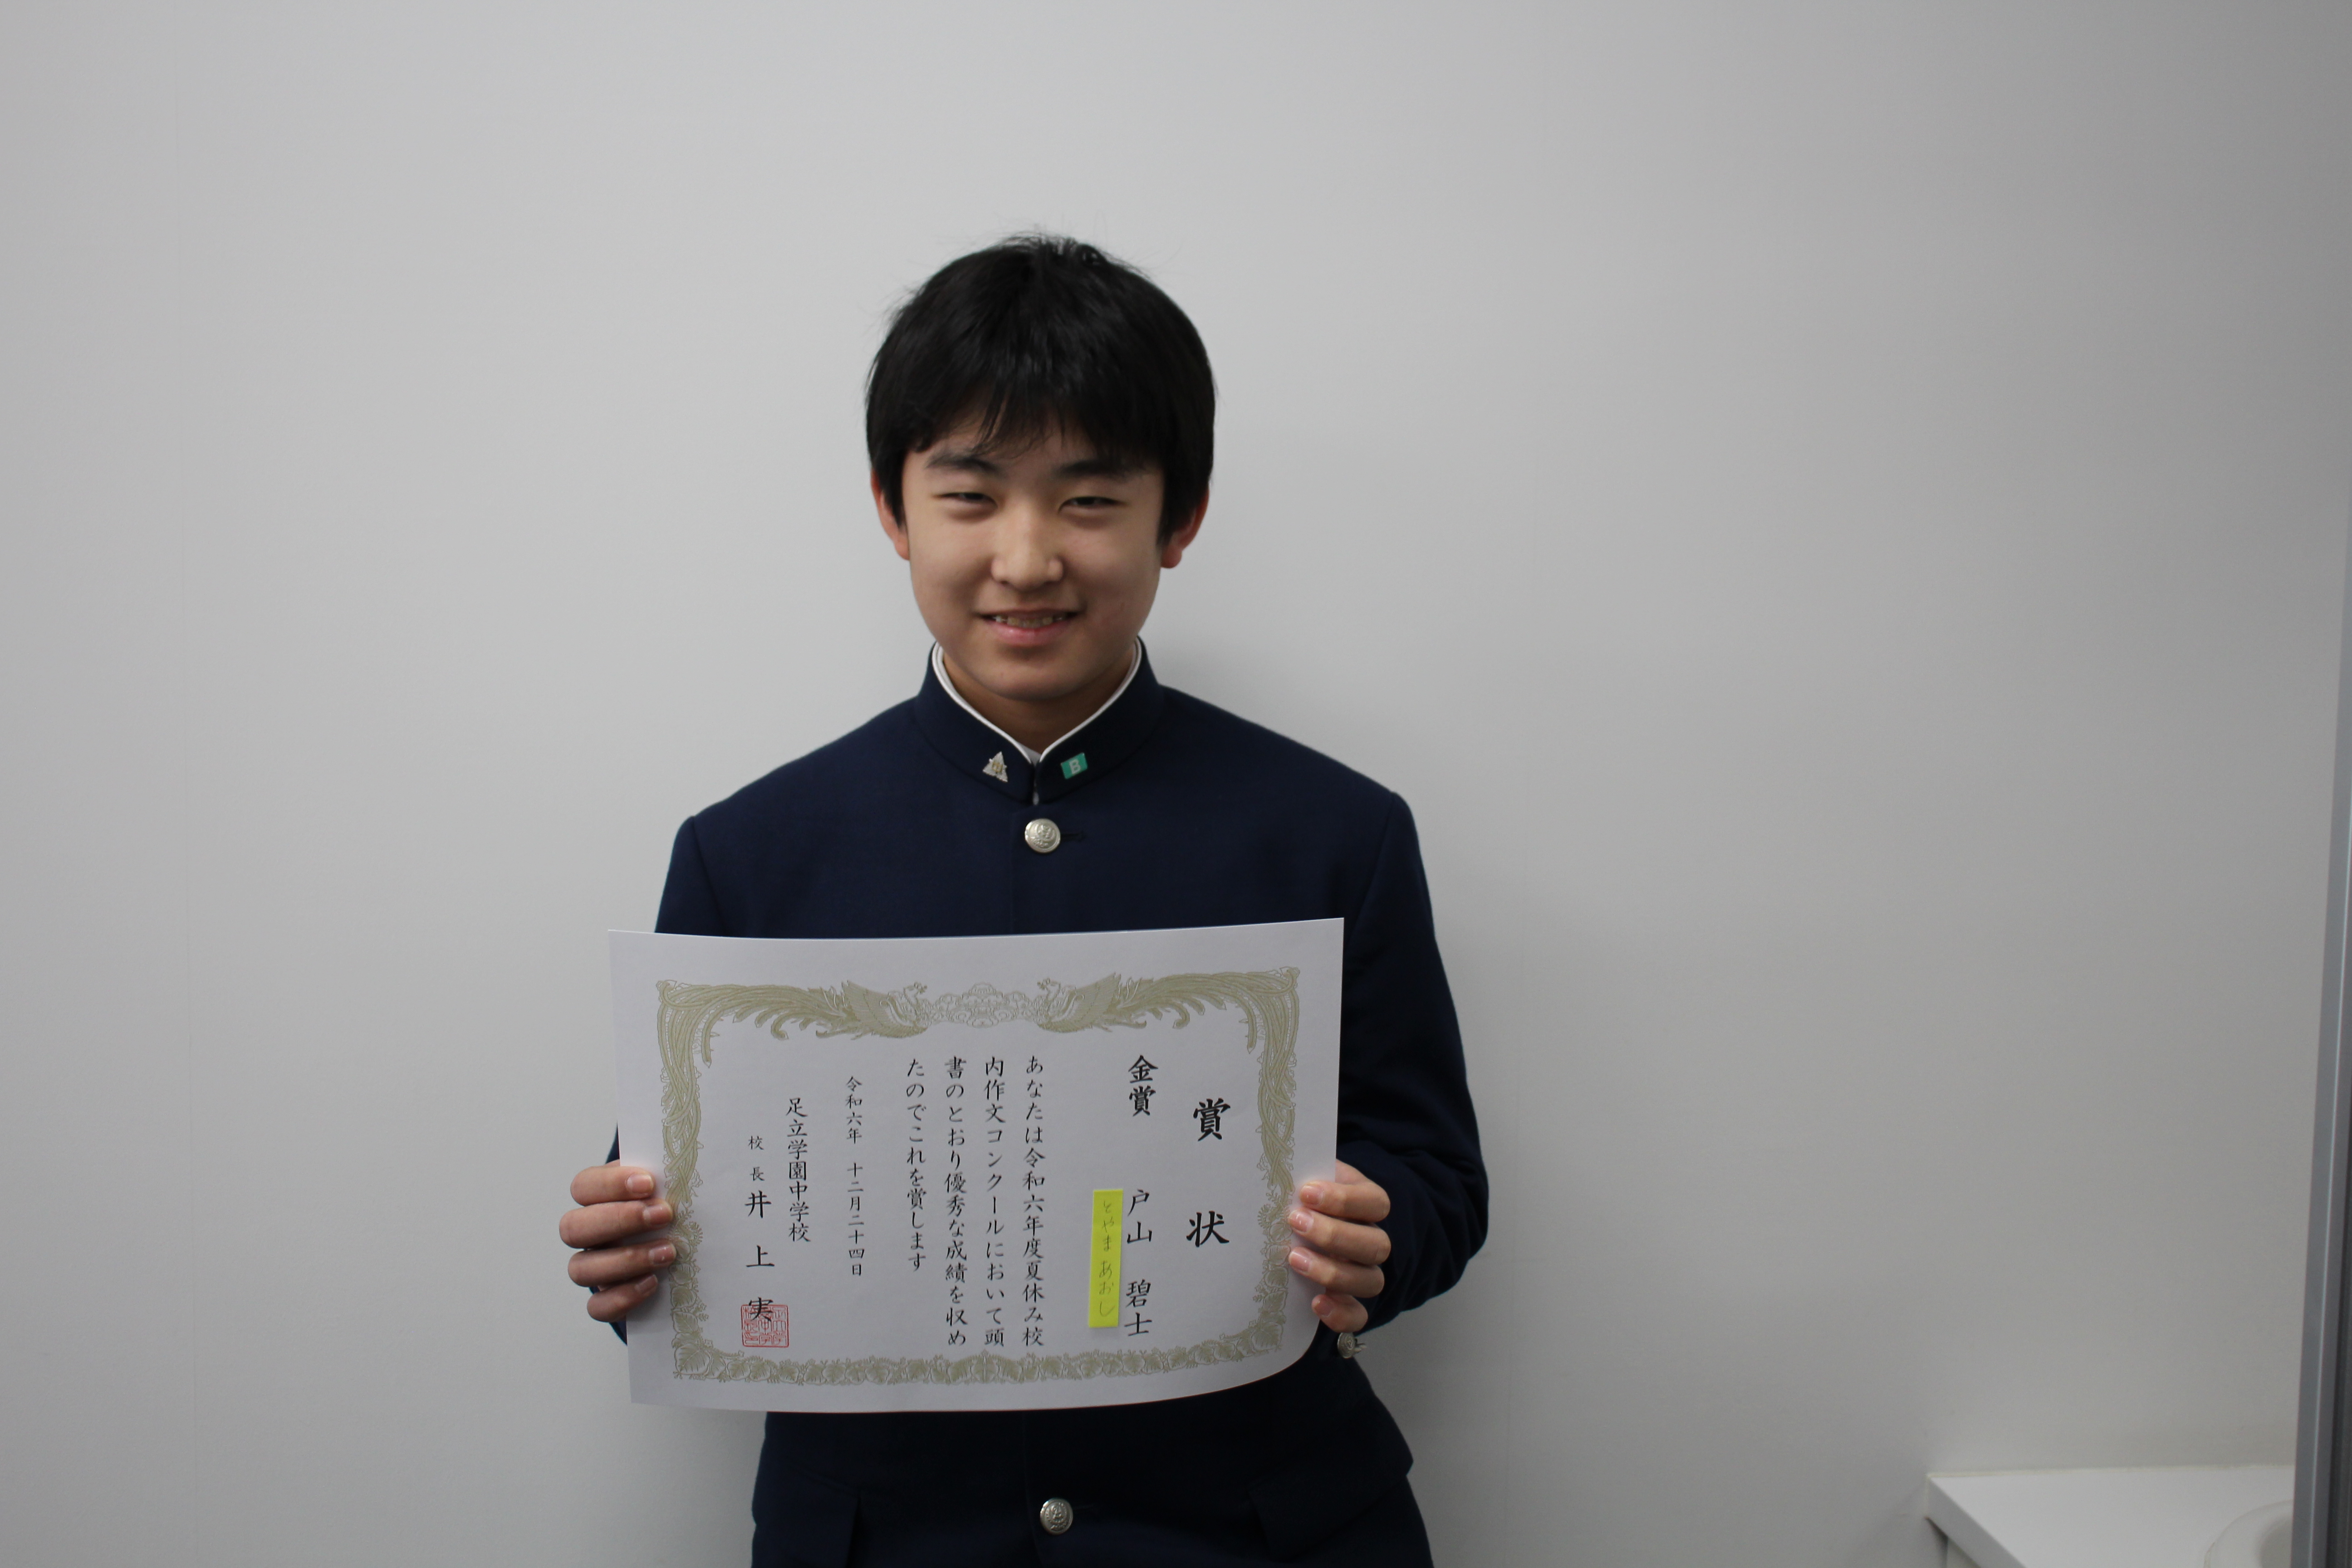 賞状
金賞 戸山 碧士
とやま あおし
あなたは令和六年度夏休み校
内作文コンクールにおいて頭
書のとおり優秀な成績を収め
たのでこれを賞します
令和六年 十二月二十四日
足立学園中学校
校長 井上 実
B